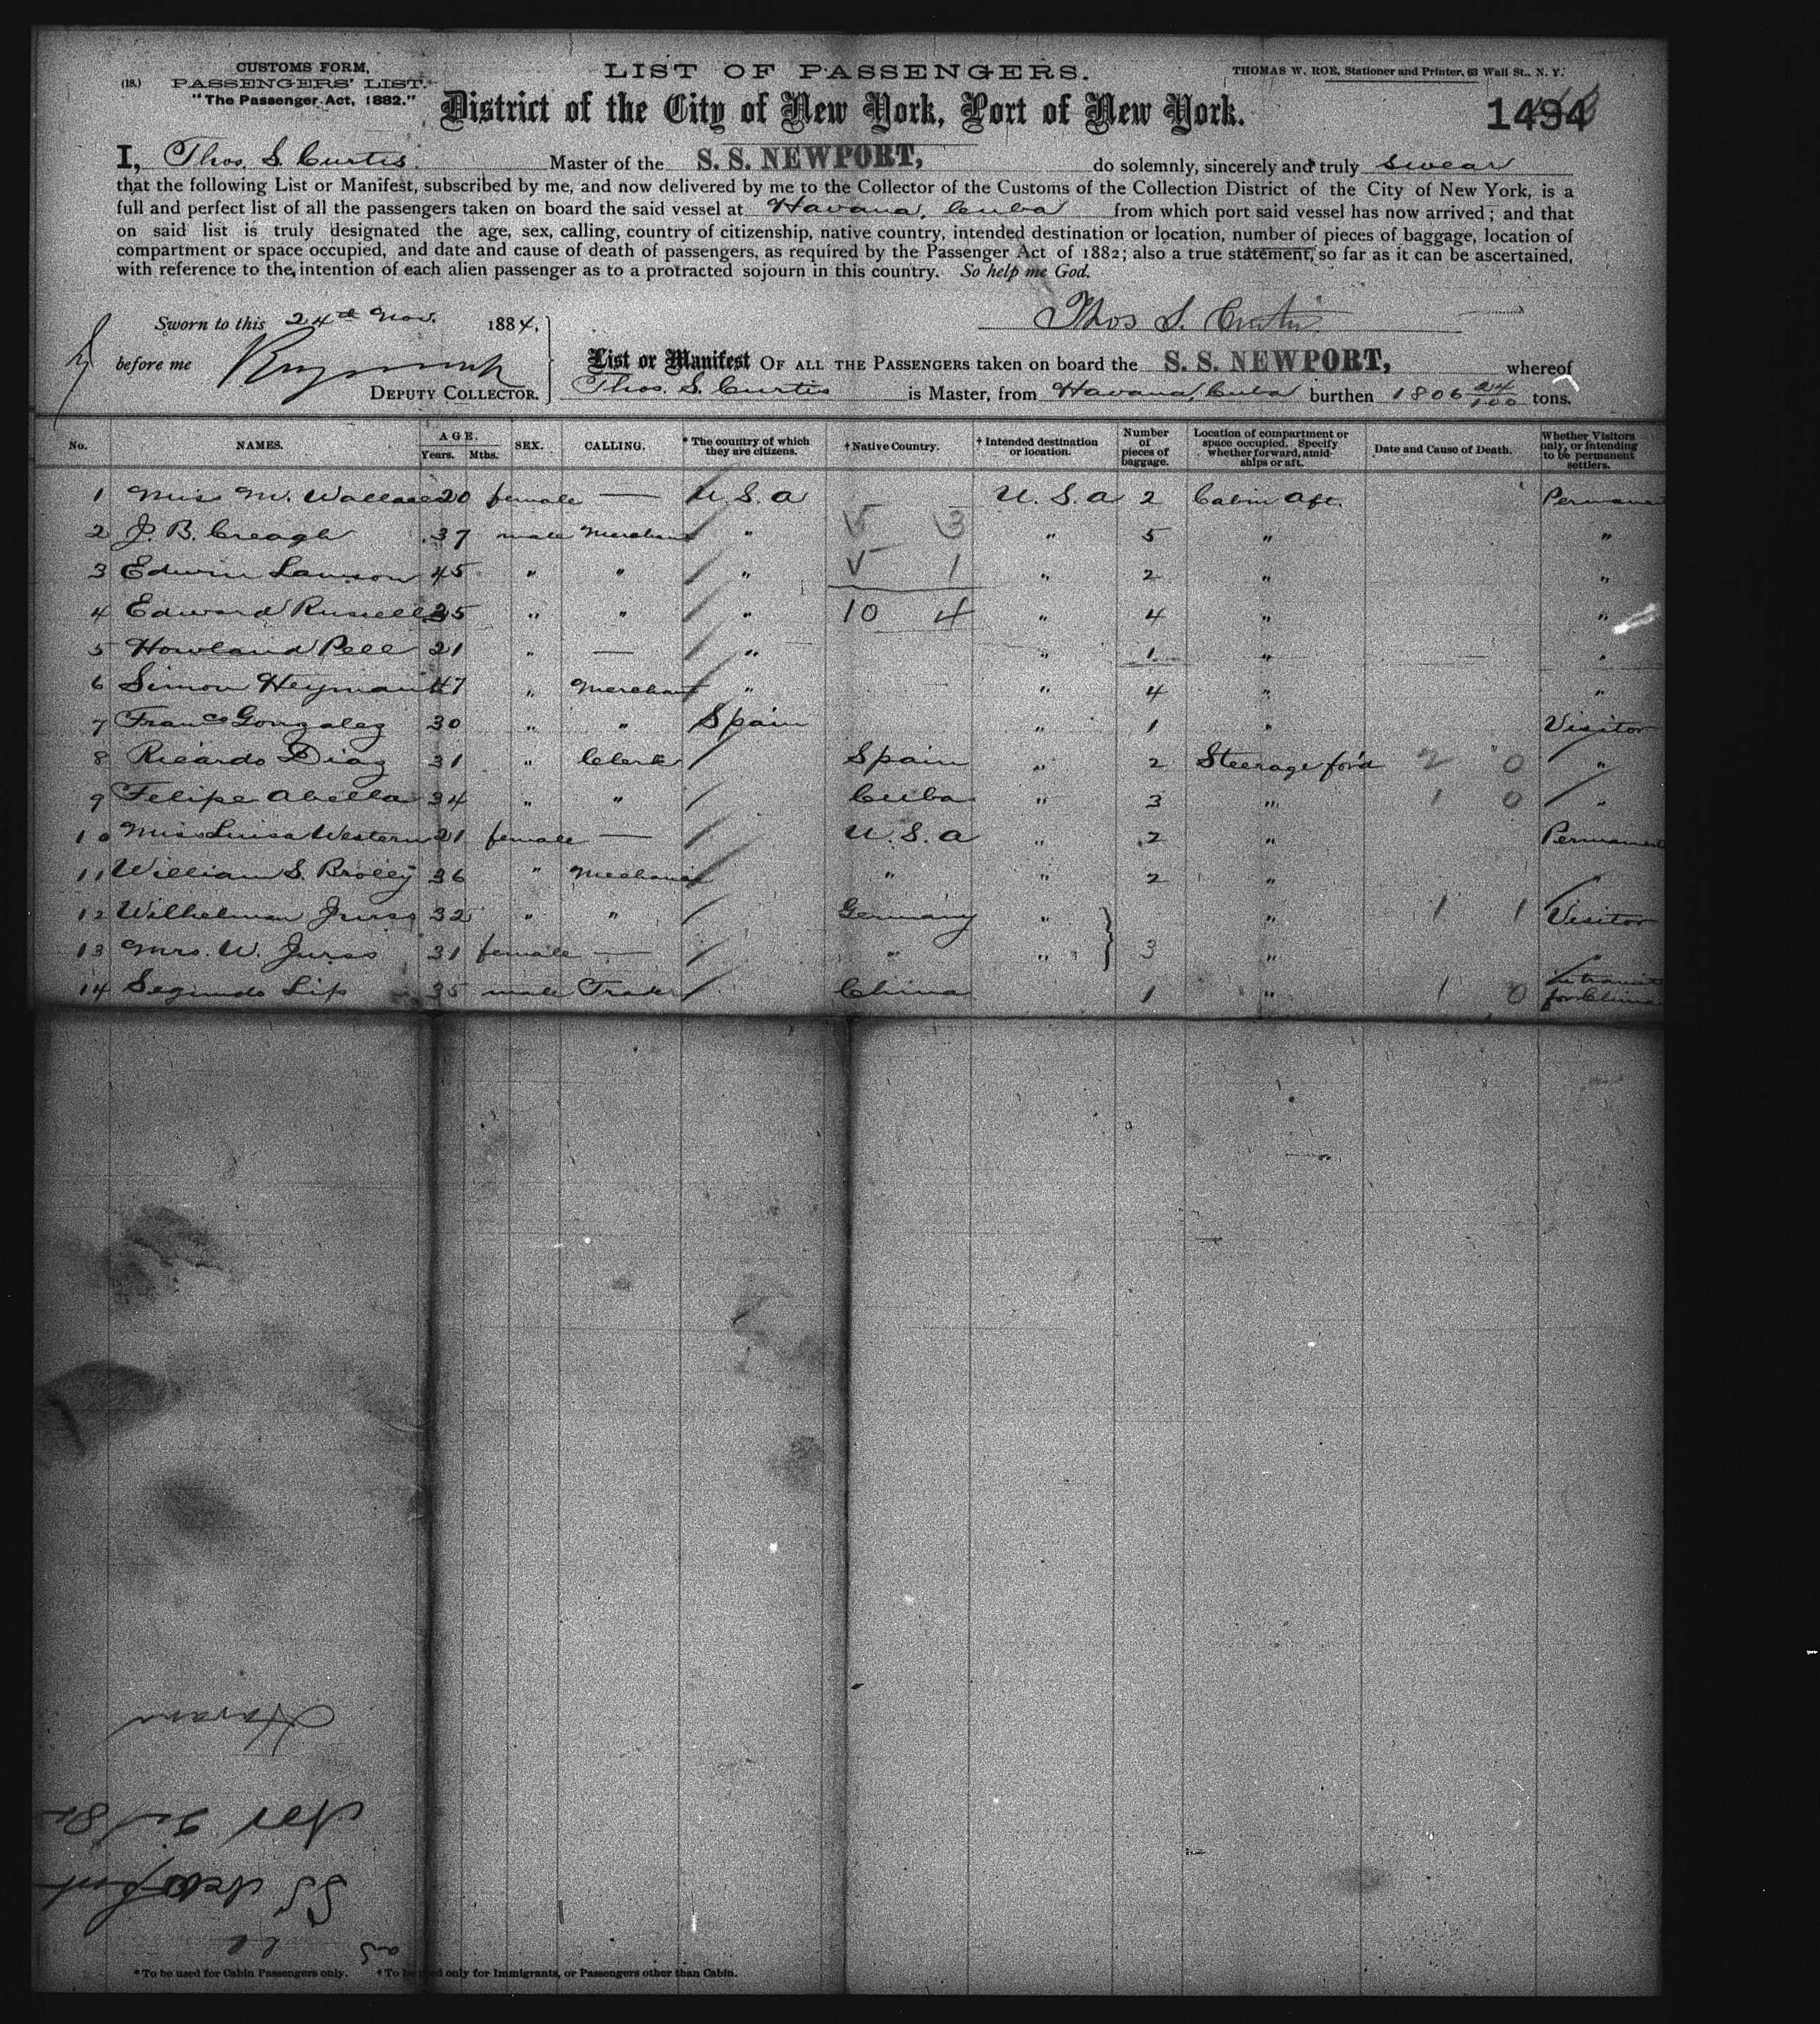 CUSTOMS FORM,
(18.) PASSENGERS' LIST.
"The Passenger Act, 1882."
LIST OF PASSENGERS.
THOMAS W. ROE, Stationer and Printer, 63 Wall St., N. Y.
District of the City of New York, Port of New York.
1494
I, Thos. S. Curtis Master of the S. S. NEWPORT, do solemnly, sincerely and truly swear
that the following List or Manifest, subscribed by me, and now delivered by me to the Collector of the Customs of the Collection District of the City of New York, is a
full and perfect list of all the passengers taken on board the said vessel at Havana, Cuba from which port said vessel has now arrived; and that
on said list is truly designated the age, sex, calling, country of citizenship, native country, intended destination or location, number of pieces of baggage, location of
compartment or space occupied, and date and cause of death of passengers, as required by the Passenger Act of 1882; also a true statement, so far as it can be ascertained,
with reference to the intention of each alien passenger as to a protracted sojourn in this country. So help me God.
Thos S. Curtis
Sworn to this 24th Nov. 1884,
before me
DEPUTY COLLECTOR.
List or Manifest OF ALL THE PASSENGERS taken on board the S. S. NEWPORT, whereof
Thos. S. Curtis is Master, from Havana, Cuba burthen 1806 24/100 tons.
No. NAMES. AGE. Years. Mths. SEX. CALLING. * The country of which they are citizens. † Native Country. † Intended destination or location. Number of pieces of baggage. Location of compartment or space occupied. Specify whether forward, amidships or aft. Date and Cause of Death. Whether Visitors only, or intending to be permanent settlers.
1 Miss M. Wallace 20 female — U. S. a U. S. a 2 Cabin Aft. Permanent
2 J. B. Creagh 37 male Merchant " 5 3 " 5 " "
3 Edwin Lawson 45 " " " 5 1 " 2 " "
4 Edward Russell 35 " " " 10 4 " 4 " "
5 Howland Pell 21 " — " " 1 " "
6 Simon Heyman 47 " Merchant " " 4 " "
7 Franco Gonzalez 30 " " Spain " 1 " Visitor
8 Ricardo Diaz 31 " Clerk Spain " 2 Steerage for'd 2 0 "
9 Felipe Abella 34 " " Cuba " 3 " 1 0 "
10 Miss Luisa Western 21 female — U. S. a " 2 " Permanent
11 William S. Brolly 36 " Mechanic " " 2 " "
12 Wilhelman Jurss 32 " " Germany " " 1 1 Visitor
13 Mrs. W. Jurss 31 female — " " 3 "
14 Segundo Lip 35 male Trader China 1 " 1 0 In transit for China
Havana
Nov
SS Newport
* To be used for Cabin Passengers only. † To be used only for Immigrants, or Passengers other than Cabin.